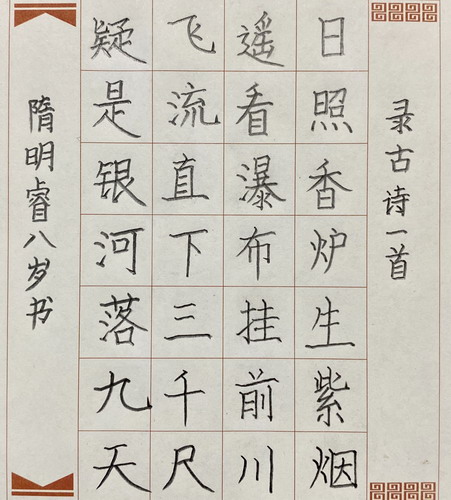 录古诗一首
日照香炉生紫烟
遥看瀑布挂前川
飞流直下三千尺
疑是银河落九天
隋明睿八岁书